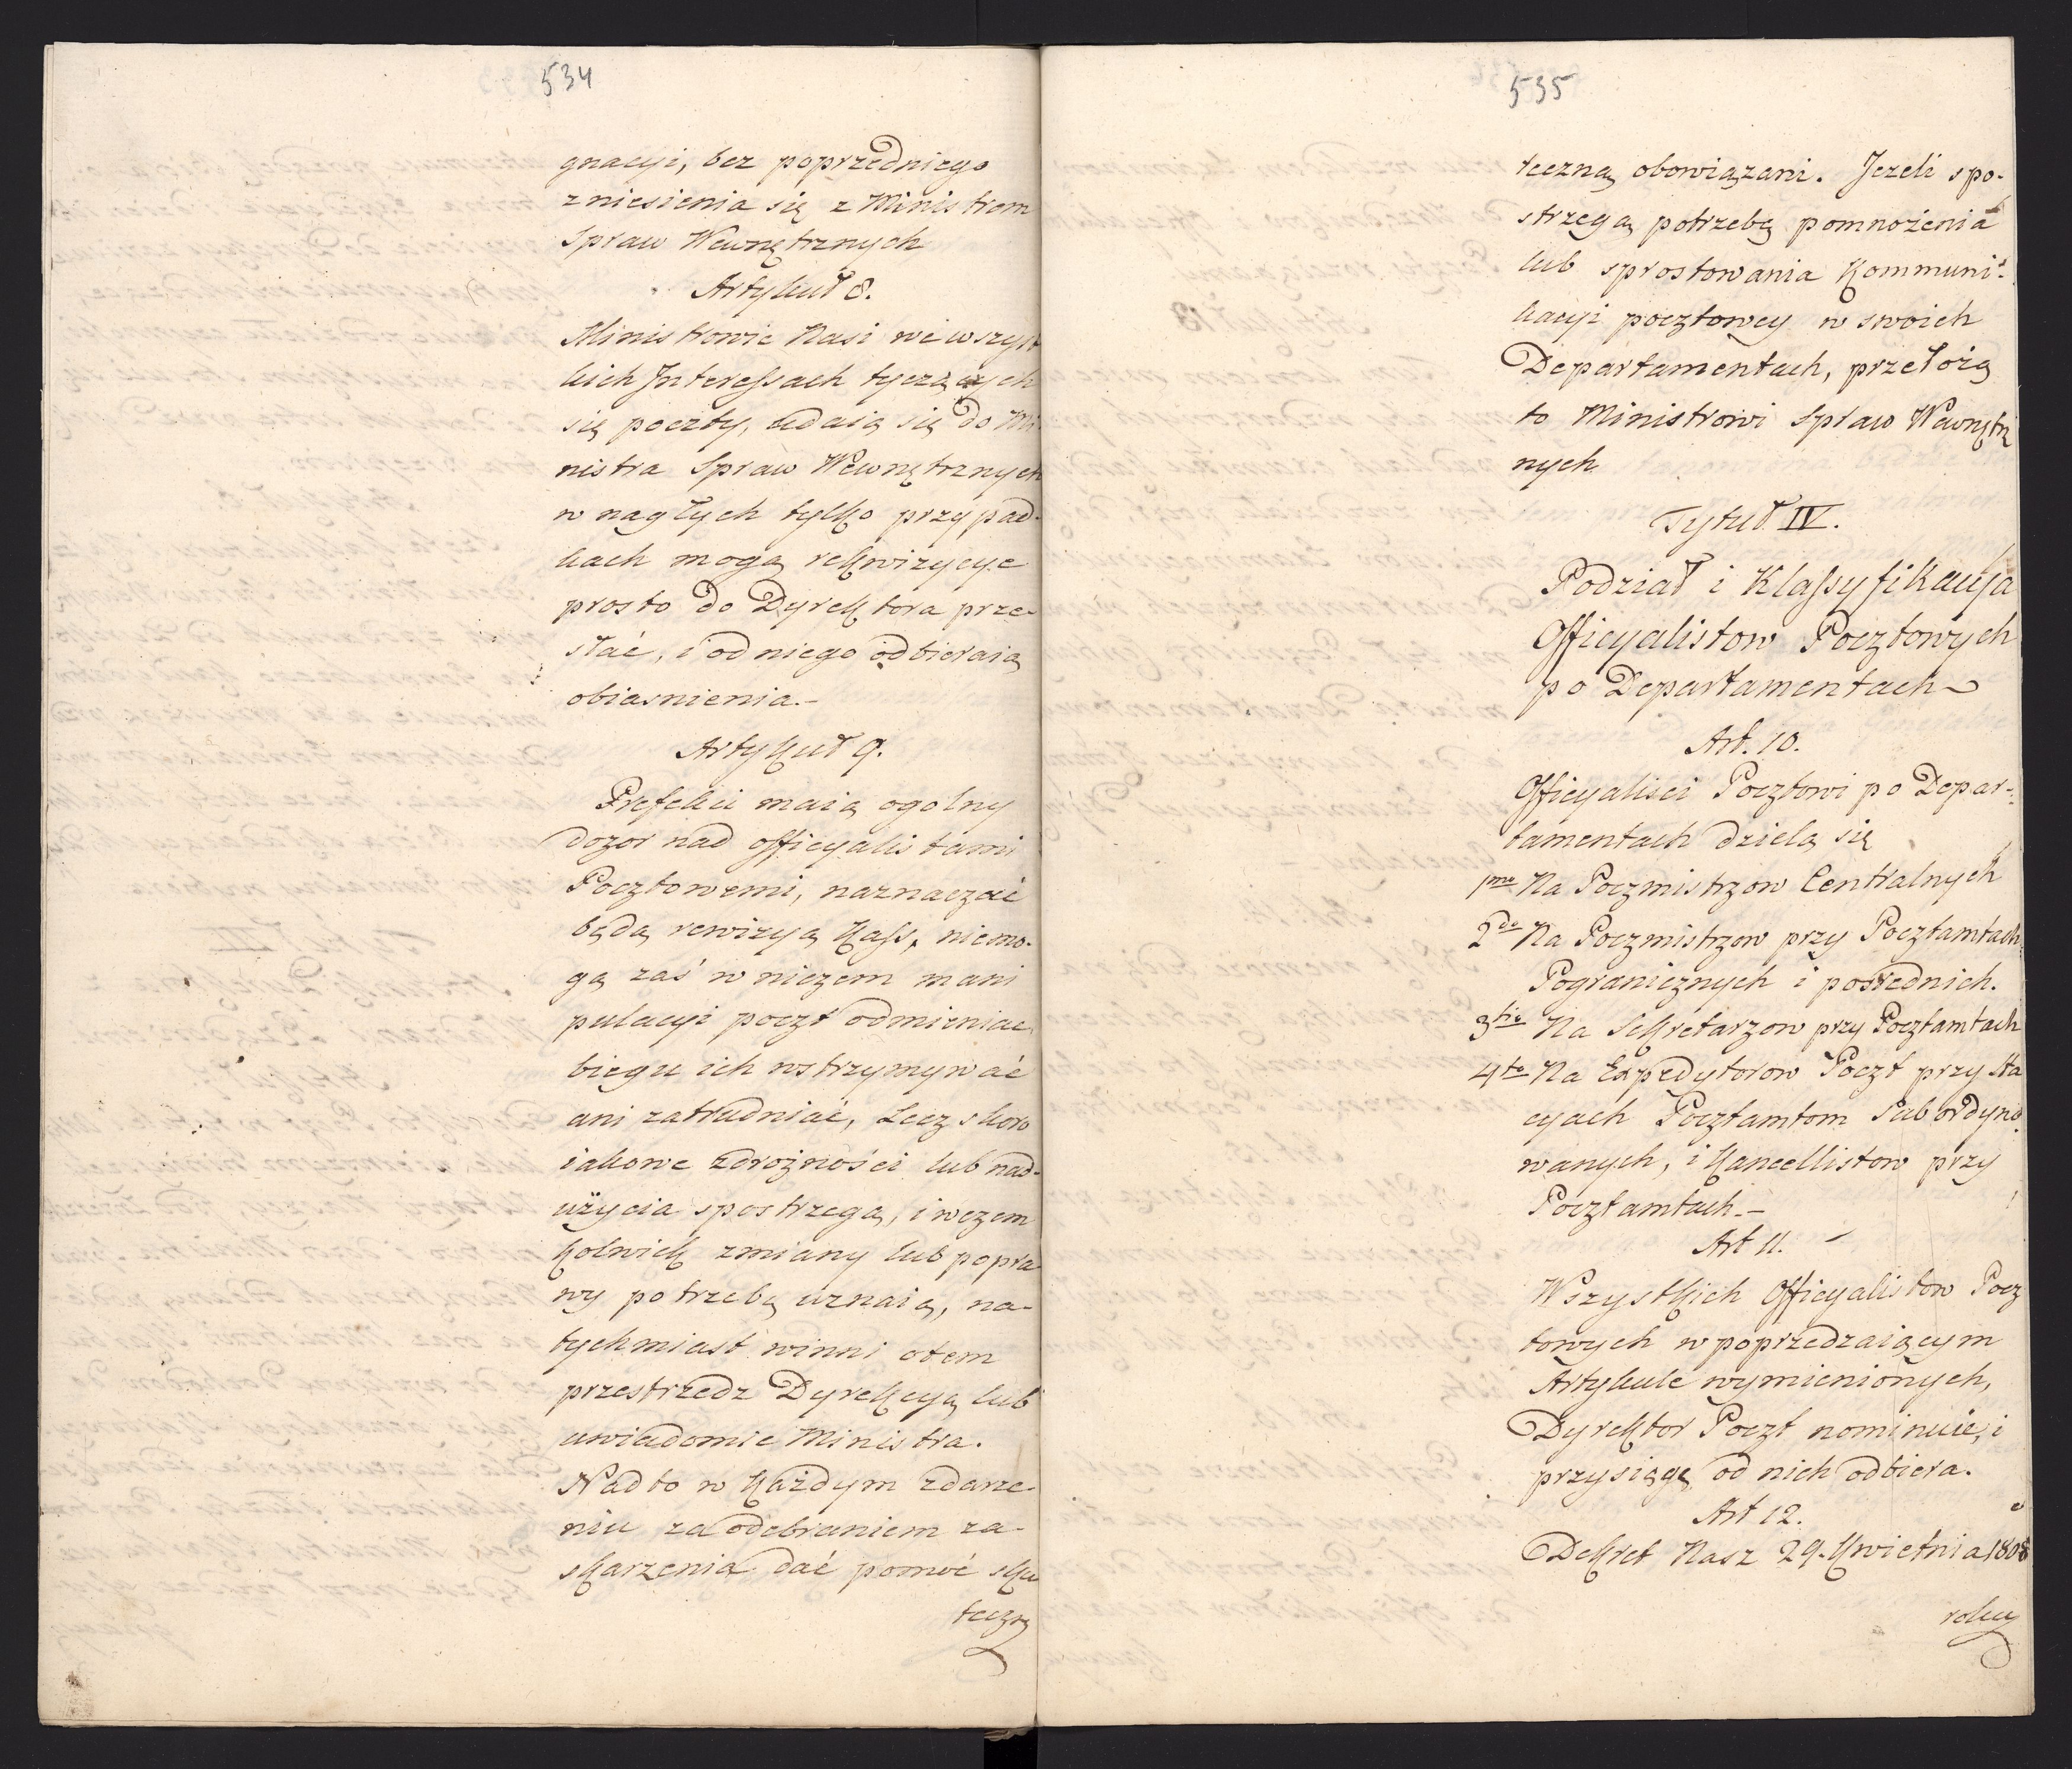 534
gnacyi, bez poprzedniego
zniesienia się z Ministrem
Spraw Wewnętrznych
Artykuł 8.
Ministrowie Nasi we wszyst
kich Interessach tyczących
się poczty, udaią się do Mi
nistra Spraw Wewnętrznych
w nagłych tylko przypad-
kach mogą rekwizycye
prosto do Dyrektora prze-
słać, i od niego odbieraią
obiasnienia.-
Artykuł 9.
Prefekci maią ogolny
dozor nad officyalistami
Pocztowemi, naznaczać
będą rewizyą Kass, niemo-
gą zaś w niczem mani
pulacyi poczt odmieniac
biegu ich wstrzymywać
ani zatrudniać, Lecz skoro
iakowe zdrożności lub nad-
użycia spostrzegą, i wczem
kolwiek zmiany lub popra
wy potrzebę uznaią, na-
tychmiast winni otem
przestrzedz Dyrekcyą lub
uwiadomic Ministra.
Nadto w każdym zdarze-
niu za odebraniem za-
skarzenia dać pomoć sku
teczn
535
teczną obowiązani. Jezeli spo-
strzegą potrzebę pomnożenia
lub sprostowania Kommuni-
kacyi pocztowey w swoich
Departamentach, przełożą
to Ministrowi Spraw Wewnętrz
nych
Tytuł IV.
Podział i Klassyfikacyja
Officyalistow Pocztowych
po Departamentach
Art. 10.
Officyalisci Pocztowi po Depar-
tamentach dzielą się
1mo Na Poczmistrzow Centralnych
2do Na Poczmistrzow przy Pocztamtach
Pogranicznych i posrednich.
3tio Na Sekretarzow przy Pocztamtach
4to Na Expedytorow Poczt przy Sta
cyach Pocztamtom Subordyno
wanych, i Kancellistow przy
Pocztamtach.-
Art 11.
Wszystkich Officyalistow Pocz
towych w poprzedzaiącym
Artykule wymienionych,
Dyrektor Poczt nominuie, i
przysięgę od nich odbiera.
Art 12.
Dekret Nasz 29. Kwietnia 1808
roku